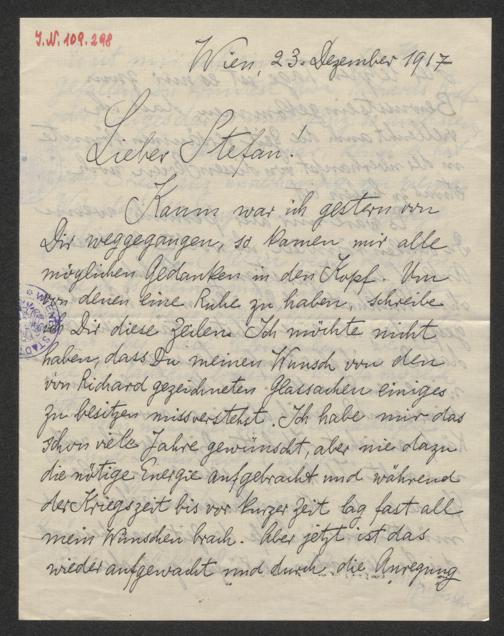 J.N. 109.298
Wien, 23. Dezember 1917
Lieber Stefan!
Kaum war ich gestern von
Dir weggegangen, so kamen mir alle
möglichen Gedanken in den Kopf. Um
von denen eine Ruhe zu haben, schreibe
ich Dir diese Zeilen. Ich möchte nicht
haben, dass Du meinen Wunsch von den
von Richard gezeichneten Glassachen einiges
zu besitzen missverstehst. Ich habe mir das
schon viele Jahre gewünscht, aber nie dazu
die nötige Energie aufgebracht und während
der Kriegszeit bis vor kurzer Zeit lag fast all
mein Wünschen brach. Aber jetzt ist das
wieder aufgewacht und durch die Anregung